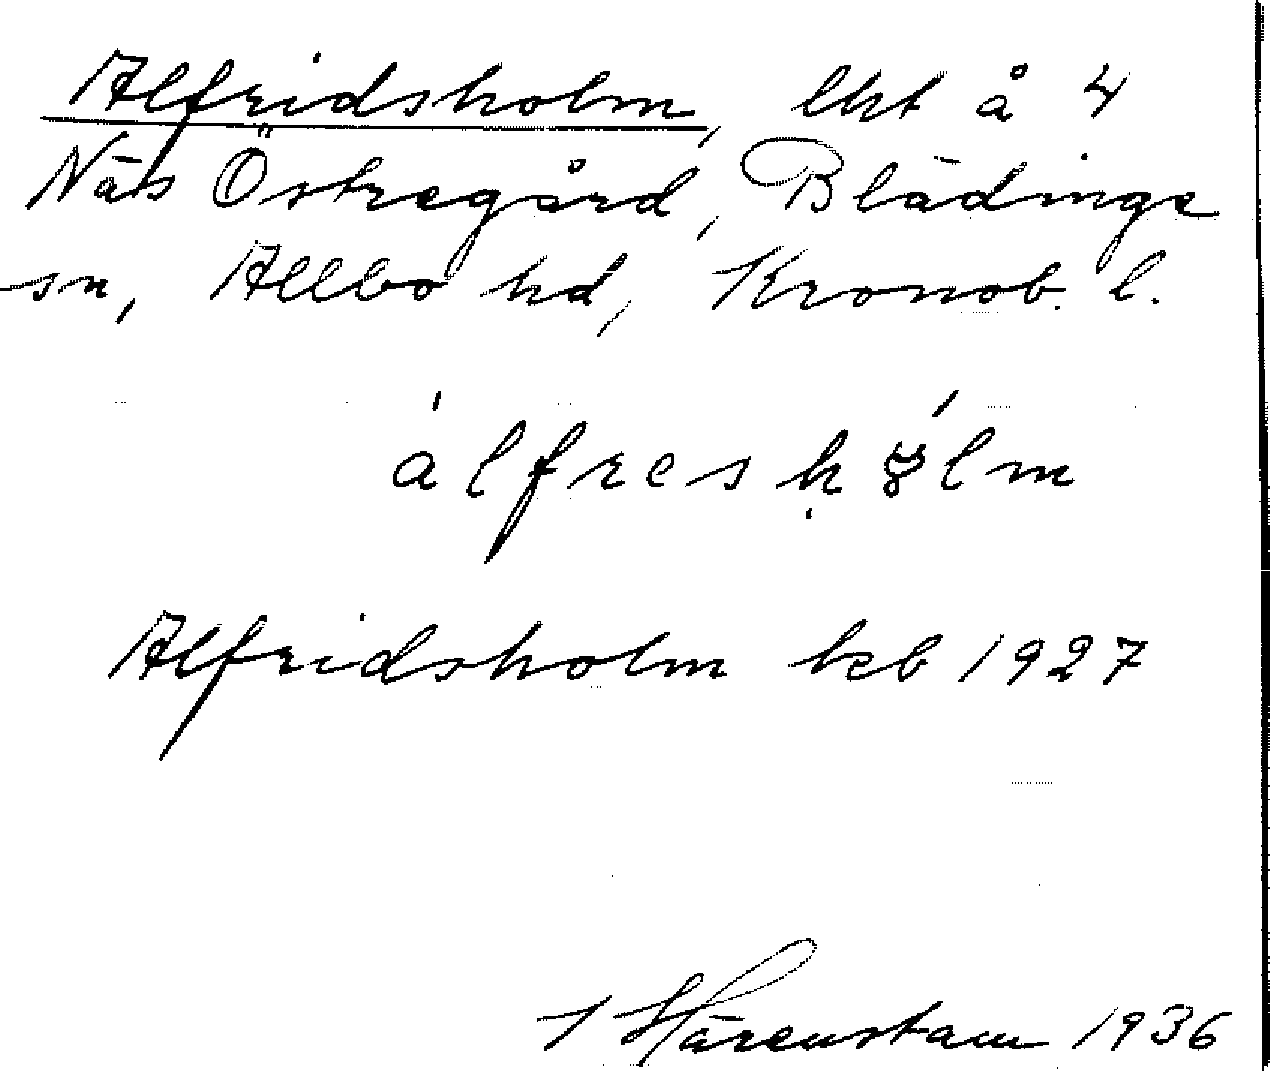 Alfridsholm, lht å 4
Näs Östregård, Blädinge
sn, Allbo hd, Kronob. l.
álfresḥ ɣ́lm
Alfridsholm kb 1927
Härenstam 1936